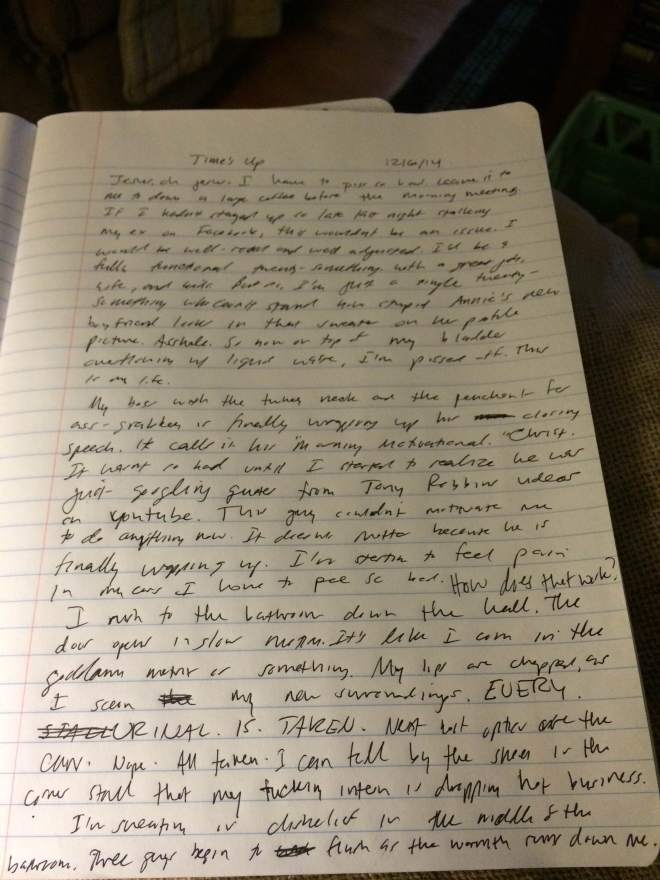 Time's Up 12/6/14
Jesus, oh jesus. I have to piss so bad. Leave it to
me to down a large coffee before the morning meeting.
If I hadn't stayed up so late last night stalking
my ex on Facebook, this wouldn't be an issue. I
would be well-rested and well adjusted. I'd be a
fully functional twenty-something with a great job,
wife, and kids. But no, I'm just a single twenty-
something who can't stand how stupid Annie's new
boyfriend looks in that sweater on her profile
picture. Asshole. So now on top of my bladder
overflowing w/ liquid, I'm pissed-off. This
is my life.
My boss with the turkey neck and the penchant for
ass-grabbing is finally wrapping up his closing
speech. It calls it his "Morning Motivational." Christ.
It wasn't so bad until I started to realize he was
just googling quotes from Tony Robbins videos
on youtube. This guy couldn't motivate me
to do anything now. It doesn't matter because he is
finally wrapping up. I'm startin to feel pain
in my ears I have to pee so bad. How does that work?
I rush to the bathroom down the hall. The
door opens in slow motion. It's like I am in the
goddamn matrix or something. My lips are chapped, as
I scan my new surroundings. EVERY.
URINAL. IS. TAKEN. Next best option are the
cans. Nope. All taken. I can tell by the shoes in the
corner stall that my fucking intern is dropping hot business.
I'm sweating in disbelief in the middle of the
bathroom. Three guys begin to flush as the warmth runs down me.